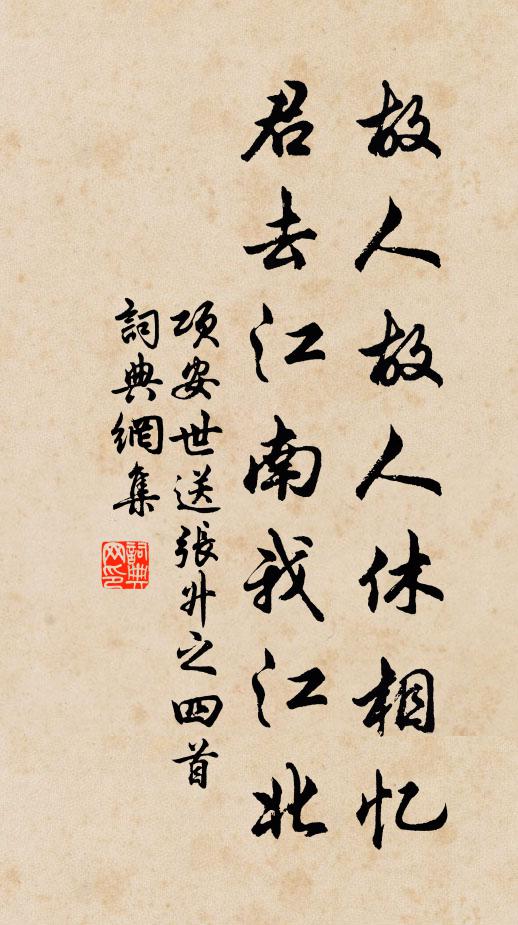 故人故人休相忆
君去江南我江北
项安世送張升之四首
詞典網集
詞典网印